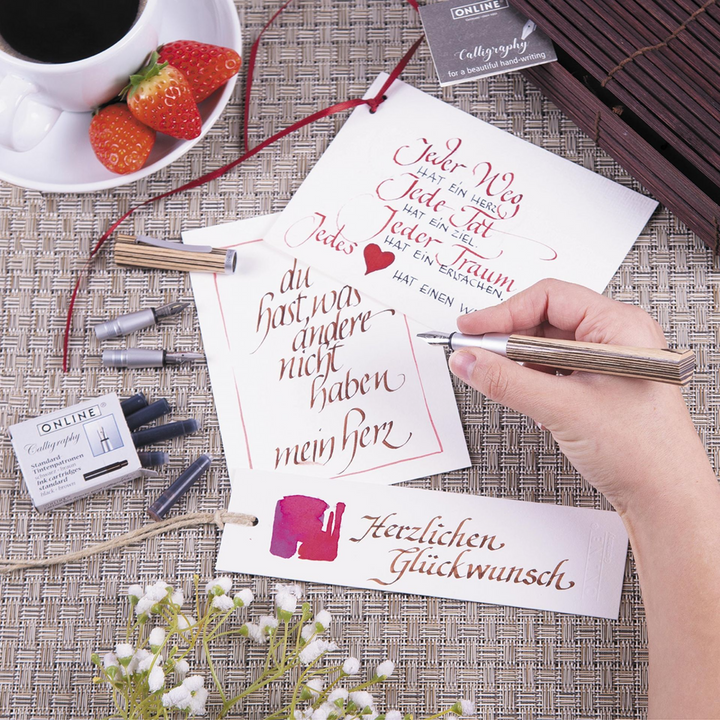 ONLINE
Calligraphy
for a beautiful hand-writing
Jeder Weg
HAT EIN HERZ.
Jede Tat
HAT EIN ZIEL.
Jeder Traum
HAT EIN ERWACHEN.
Jedes
HAT EINEN W
du
hast, was
andere
nicht
haben
mein Herz
ONLINE®
Calligraphy
Standard
Tintenpatronen
Ink cartridges
standard
Black - brown
Herzlichen
Glückwunsch